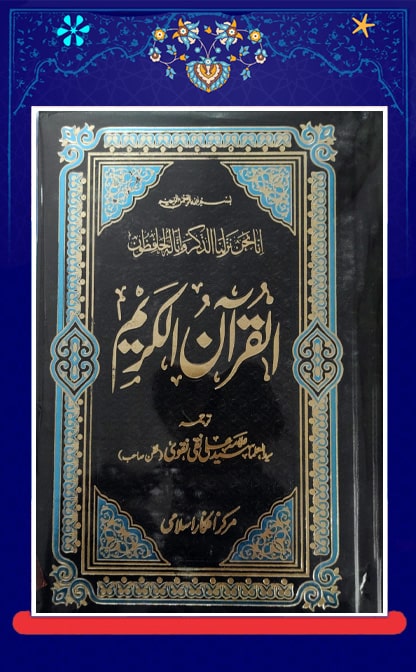 بسم اللہ الرحمن الرحیم
انا نحن نزلنا الذکر وانا لہ لحافظون
القرآن الکریم
ترجمہ
سید العلماء علامہ سید علی نقی نقوی (نقن صاحب)
مرکز افکار اسلامی